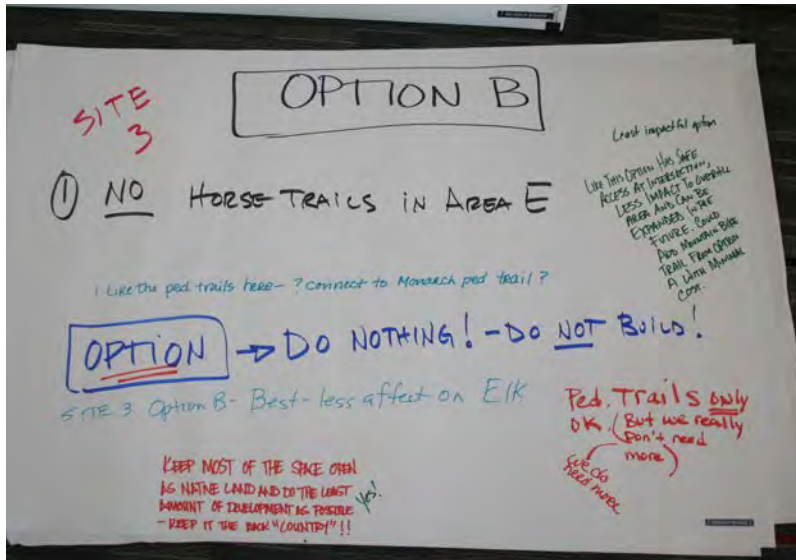 OPTION B
SITE
3
① NO HORSE TRAILS IN AREA E
Least impactful option
LIKE THIS OPTION HAS SAFE
ACCESS AT INTERSECTION,
LESS IMPACT TO OVERALL
AREA AND CAN BE
EXPANDED IN THE
FUTURE. COULD
ADD MOUNTAIN BIKE
TRAIL FROM OPTION
A WITH MINIMAL
COST.
I Like the ped trails here- ? connect to Monarch ped trail ?
OPTION → DO NOTHING! - DO NOT BUILD!
SITE 3 Option B- Best- less affect on Elk
Ped. Trails only
OK. (But we really
Don't need
more)
we do
need more
KEEP MOST OF THE SPACE OPEN
AS NATIVE LAND AND DO THE LEAST
AMOUNT OF DEVELOPMENT AS POSSIBLE
- KEEP IT THE BACK "COUNTRY"!!
Yes!